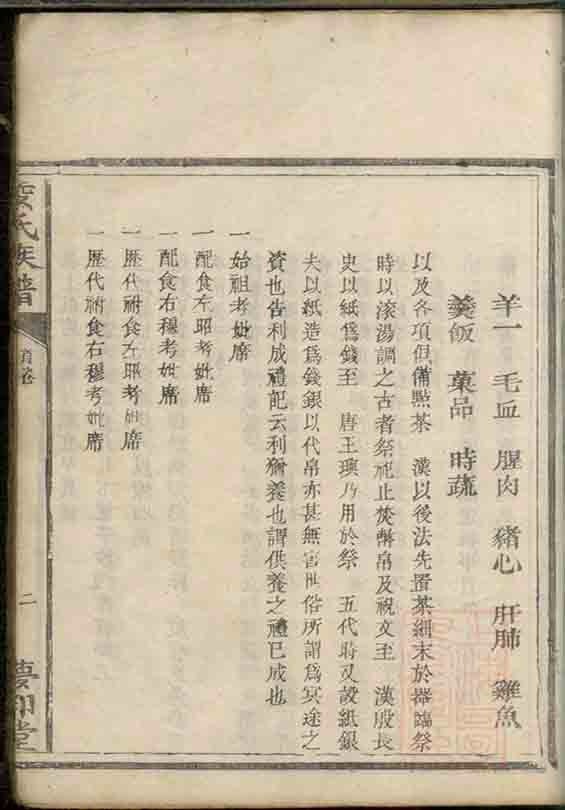 羊一 毛血 腥肉 豬心 肝肺 雞魚
羹飯 菓品 時蔬
以及各項但備㸃茶 漢以後法先置茶細末於器臨祭
時以滾湯調之古者祭祀止焚幣帛及祝文至 漢殷長
史以紙爲錢至 唐王璵乃用於祭 五代時又設紙銀
夫以紙造爲錢銀以代帛亦甚無害世俗所謂爲冥途之
資也告利成禮記云利猶養也謂供養之禮已成也
一始祖考妣席
一配食左昭考妣席
一配食右穆考妣席
一歷代祔食左昭考妣席
一歷代祔食右穆考妣席
氏族譜
首卷
二
堂